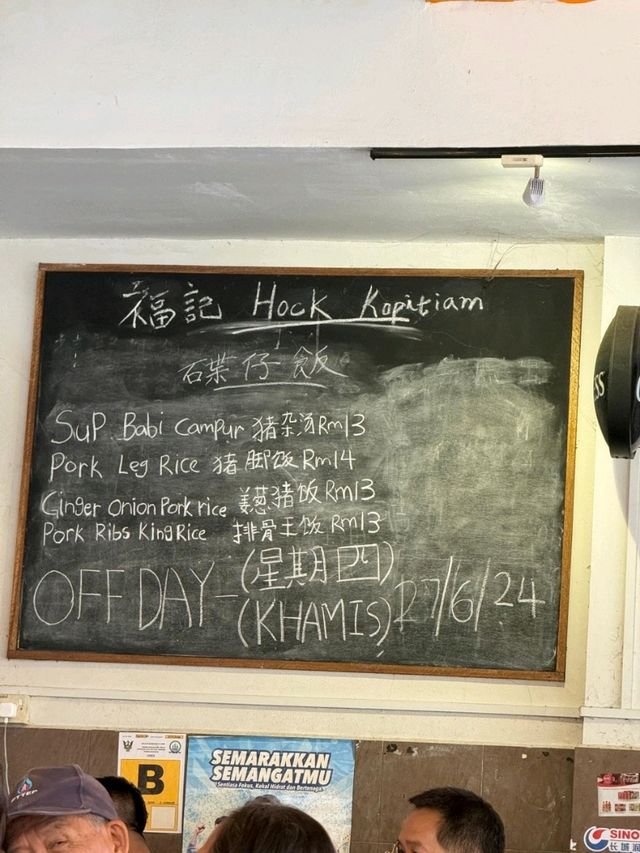 福記 Hock Kopitiam
石葉仔飯
Sup Babi Campur 猪杂汤 Rm13
Pork Leg Rice 猪脚饭 Rm14
Ginger Onion Pork rice 姜葱猪饭 Rm13
Pork Ribs King Rice 排骨王饭 Rm13
OFF DAY - (星期四)
(KHAMIS) 27/6/24
B
SEMARAKKAN
SEMANGATMU
Sentiasa Fokus, Kekal Hidrat dan Bertenaga
SINO
长城润